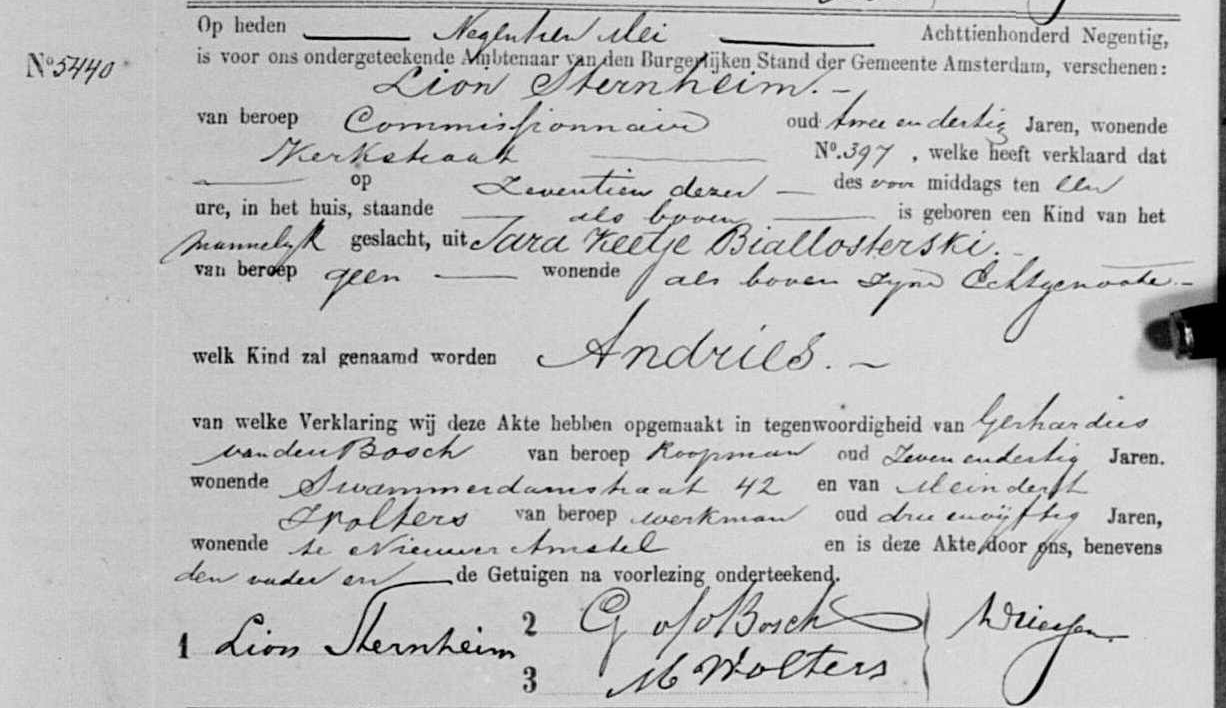 Op heden Negentien Mei Achttienhonderd Negentig,
No 5440
is voor ons ondergeteekende Ambtenaar van den Burgerlijken Stand der Gemeente Amsterdam, verschenen:
Lion Sternheim.
van beroep Commissionnair oud twee en dertig Jaren, wonende
Kerkstraat No. 397, welke heeft verklaard dat
op Zeventien dezer des voor middags ten Een
ure, in het huis, staande als boven is geboren een Kind van het
mannelijk geslacht, uit Sara Keetje Biallosterski.
van beroep geen wonende als boven zyne Echtgenoote.
welk Kind zal genaamd worden Andries.
van welke Verklaring wij deze Akte hebben opgemaakt in tegenwoordigheid van Gerhardus
van den Bosch van beroep Koopman oud Zeven en dertig Jaren.
wonende Swammerdamstraat 42 en van Meindert
Wolters van beroep werkman oud drie en vijftig Jaren,
wonende te Nieuwer Amstel en is deze Akte door ons, benevens
den vader en de Getuigen na voorlezing onderteekend.
1 Lion Sternheim
2 G v/d Bosch
3 M Wolters